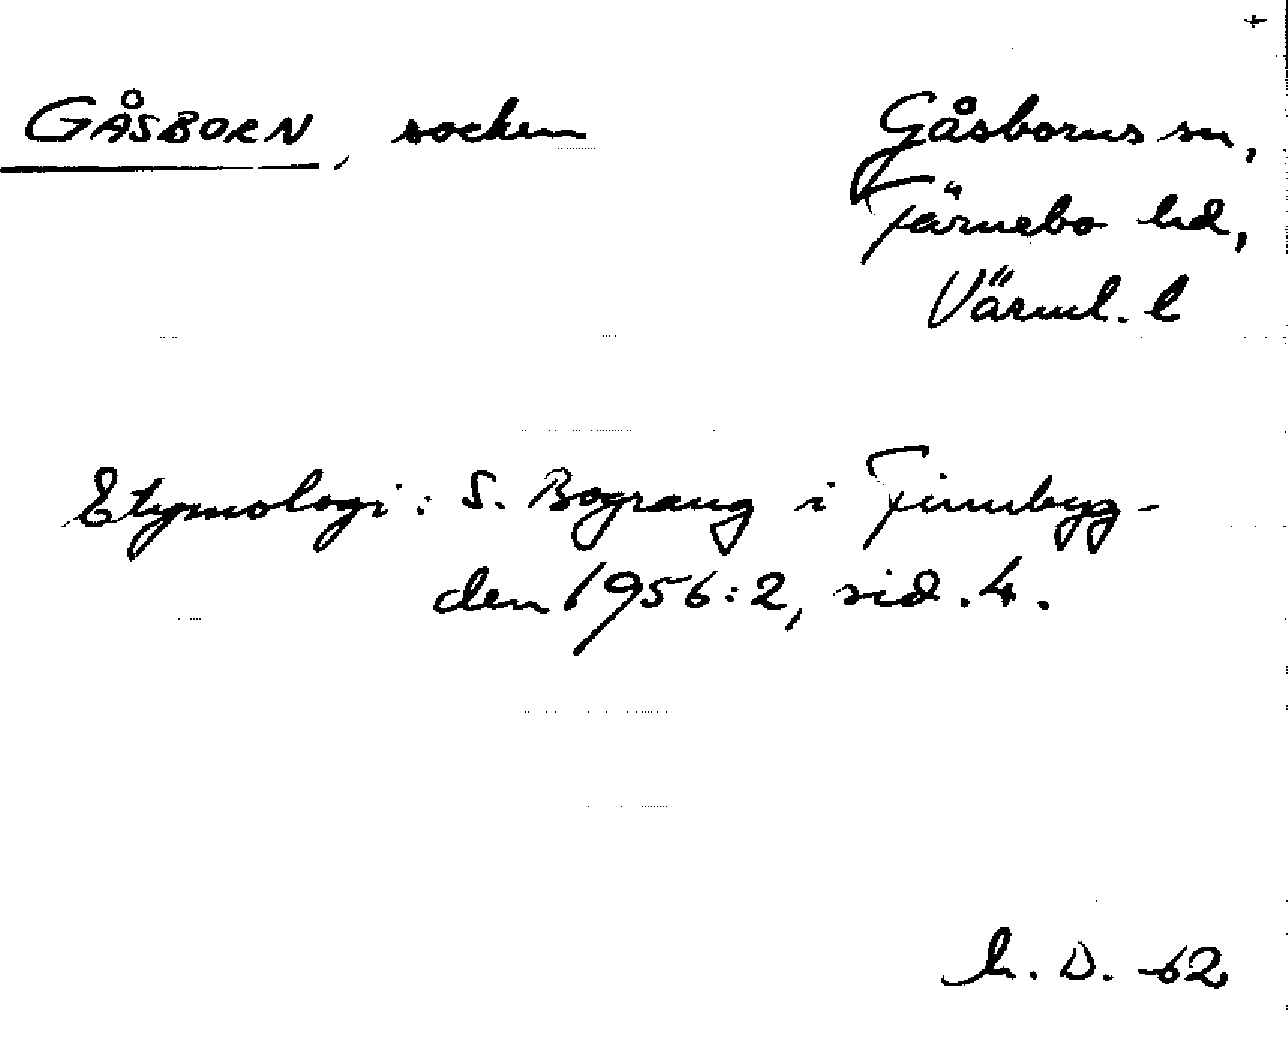 +
GÅSBORN, socken
Gåsborns sn,
Färnebo hd,
Värml. l
Etymologi: S. Bograng i Finnbyg-
den 1956:2, sid. 4.
h. D. -62